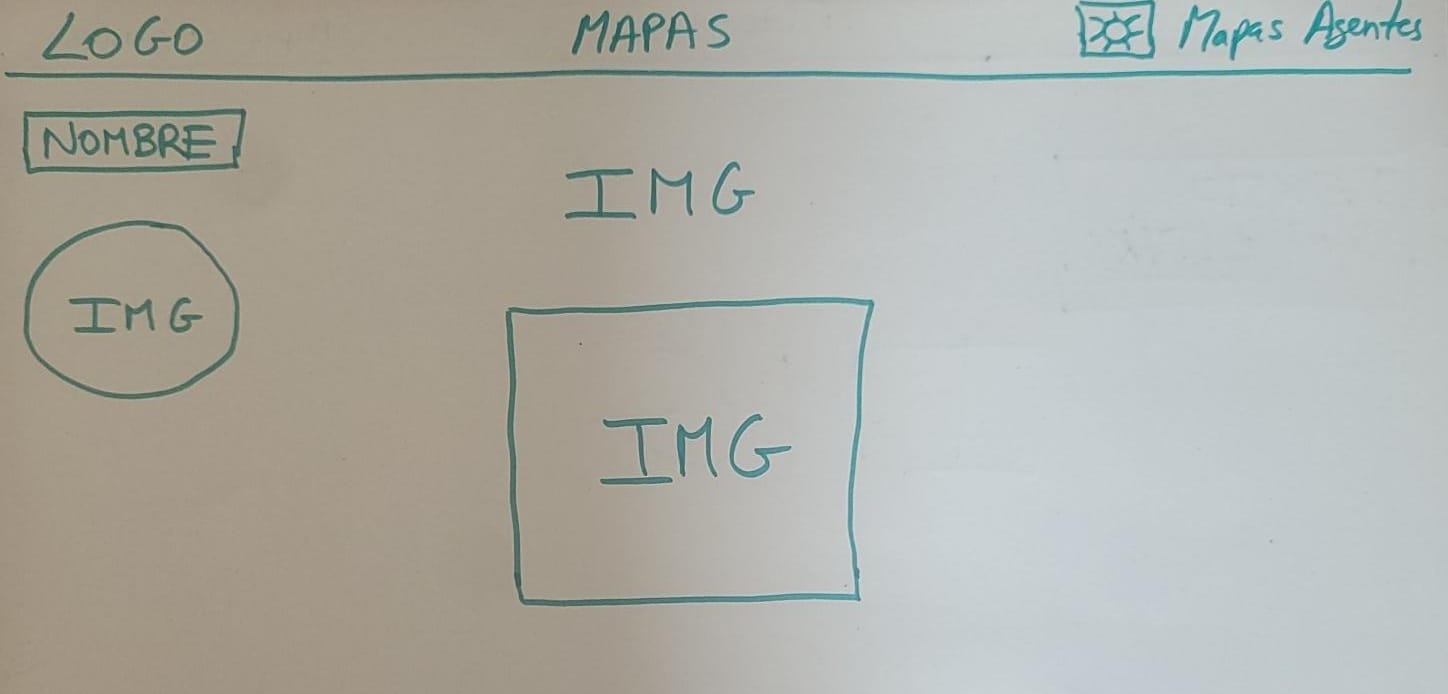 LOGO MAPAS Mapas Agentes
NOMBRE
IMG
IMG
IMG